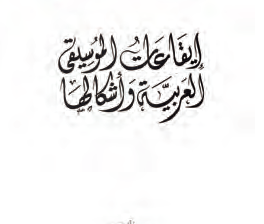 إيقاعات الموسيقى
العربية وأشكالها